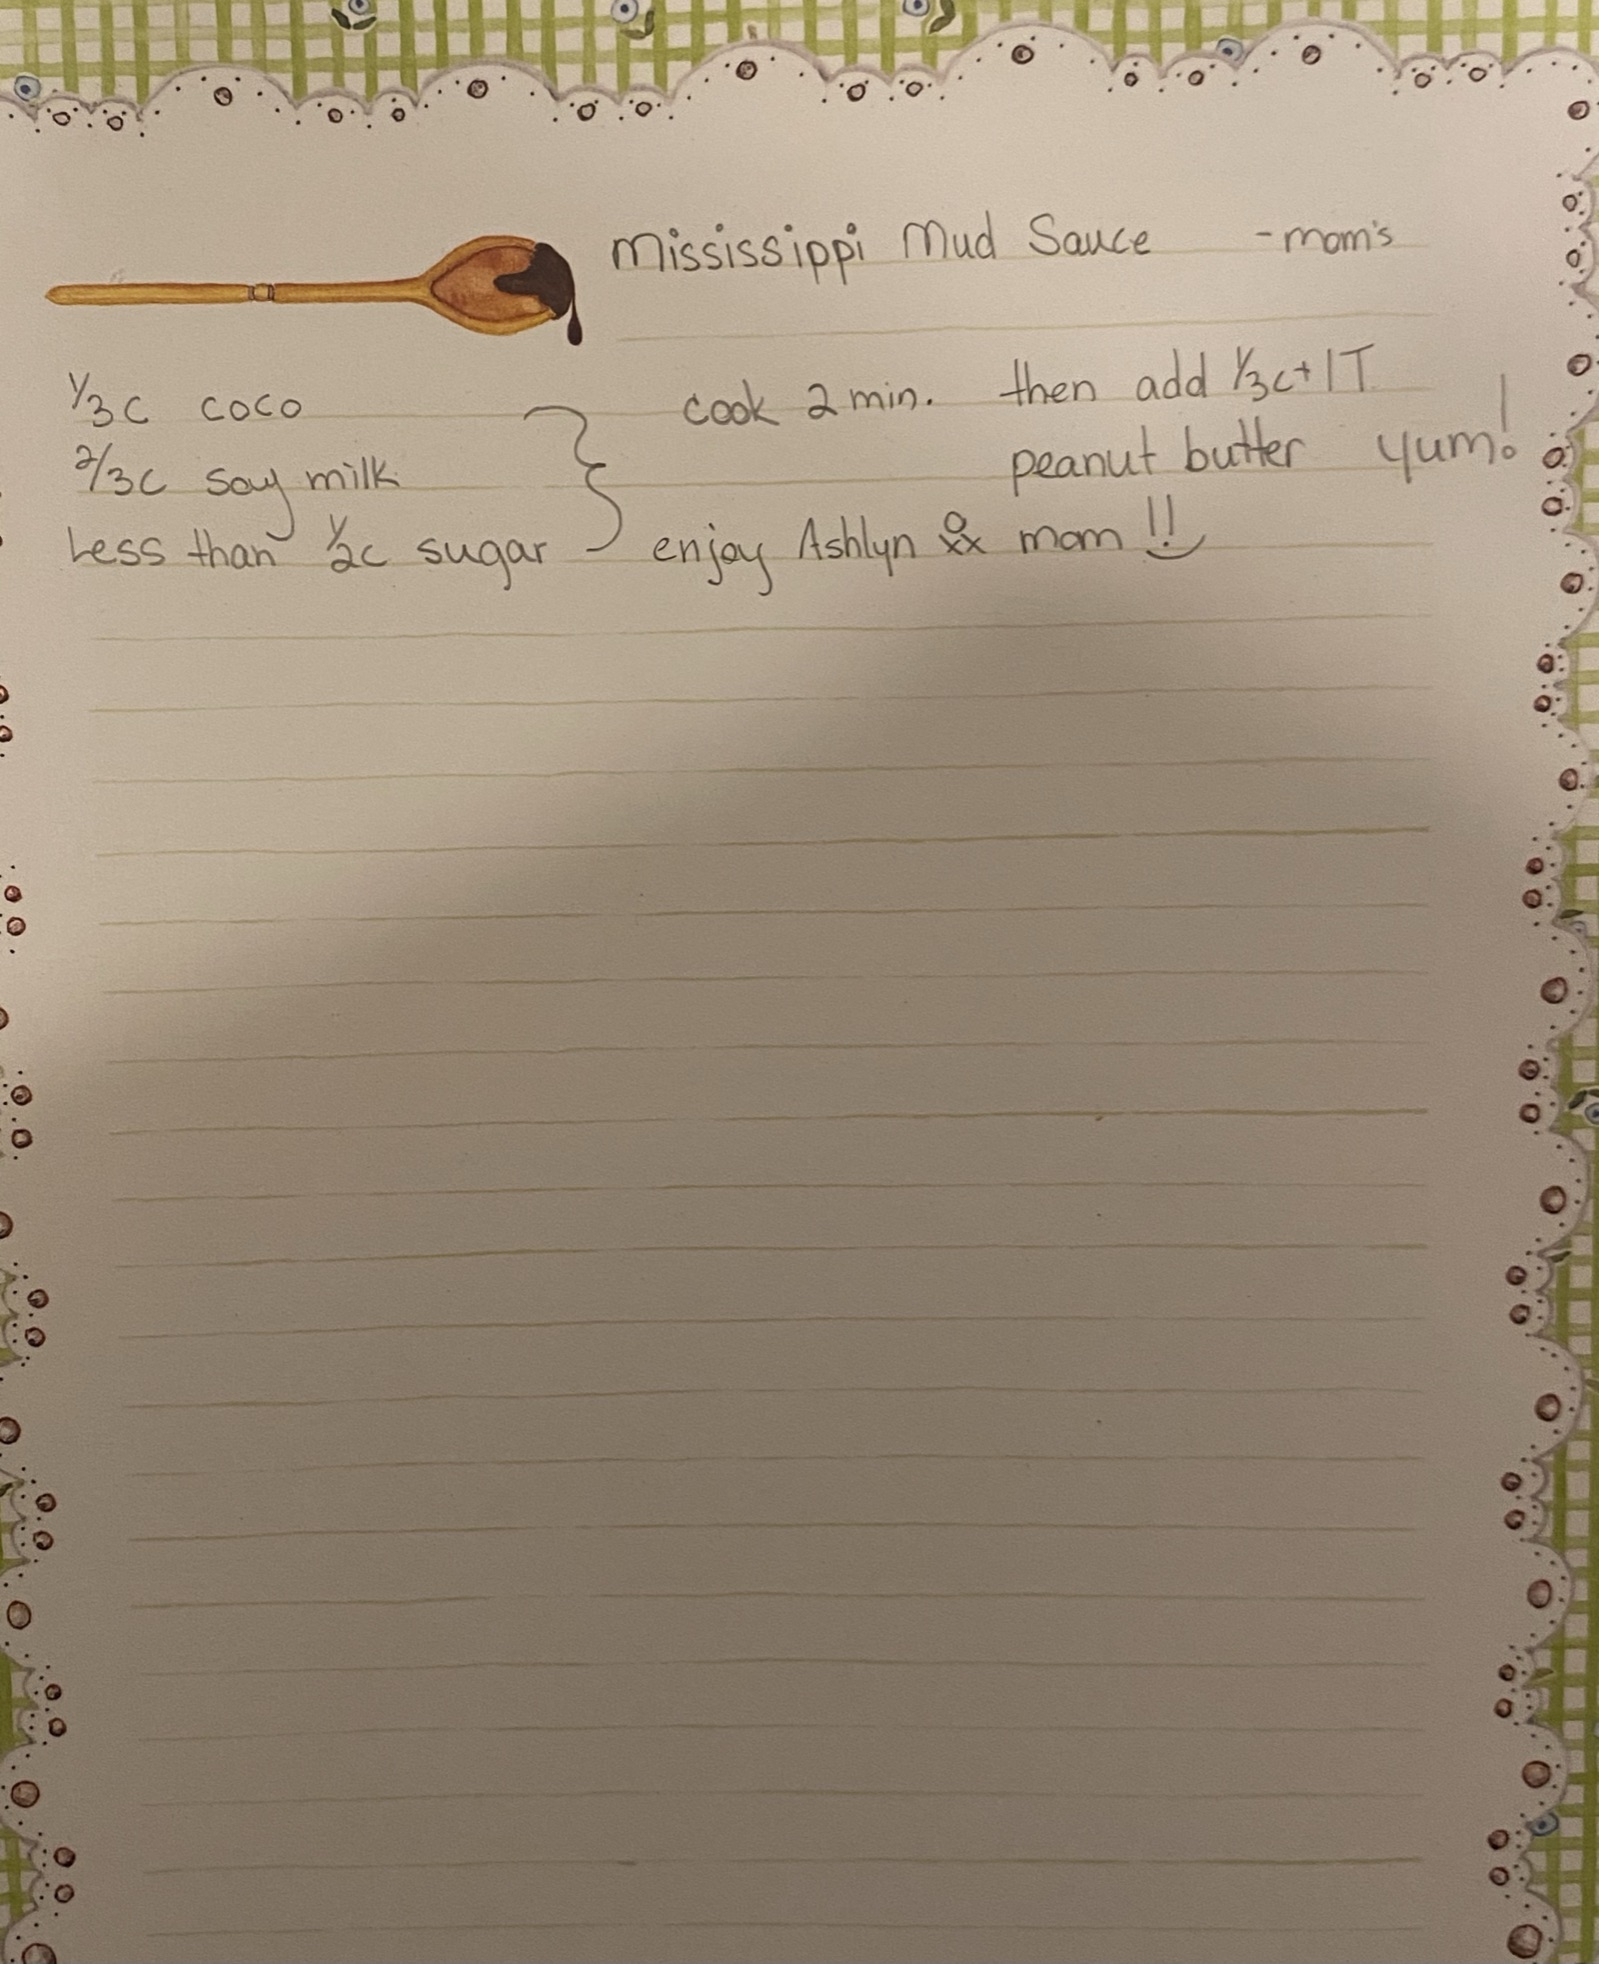 Mississippi Mud Sauce - mom's
1/3c coco
2/3c soy milk
Less than 1/2c sugar
cook 2 min. then add 1/3c + 1T
peanut butter yum!
enjoy Ashlyn & mom!!